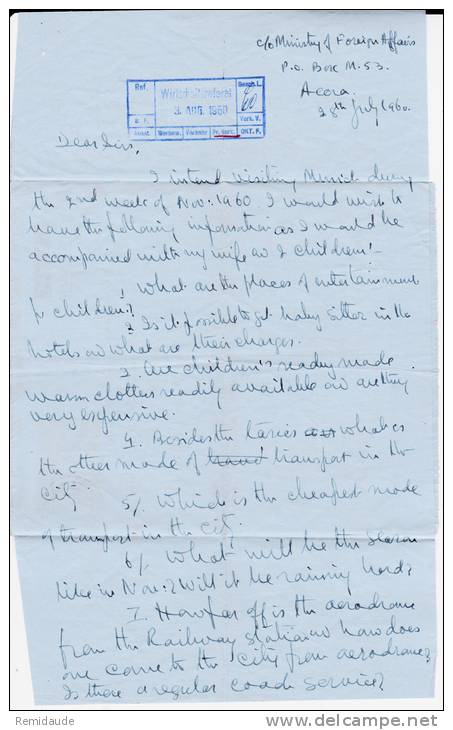 c/o Ministry of Foreign Affairs
P.O. Box M.53.
Accra.
28th July 1960.
Ref.
Wirtschaftsreferat
3. AUG. 1960
60
Vork. V.
Werbew. Verkehr OKT. F.
Dear Sirs,
I intend visiting Munich during
the 2nd week of Nov. 1960. I would wish to
have the following information as I would be
accompanied with my wife and 2 children:-
1. What are the places of entertainment
for children?
2. Is it possible to get baby sitter in the
hotels and what are their charges.
3. Are children's ready made
warm clothes readily available and are they
very expensive.
4. Besides the taxies what is
the other mode of travel transport in the
city.
5/. Which is the cheapest mode
of transport in the city.
6/. What will be the season
like in Nov:? Will it be raining hard?
7. How far off is the aerodrome
from the Railway station and how does
one come to the city from aerodrome?
Is there a regular coach service?
Remidaude
www.delcampe.net